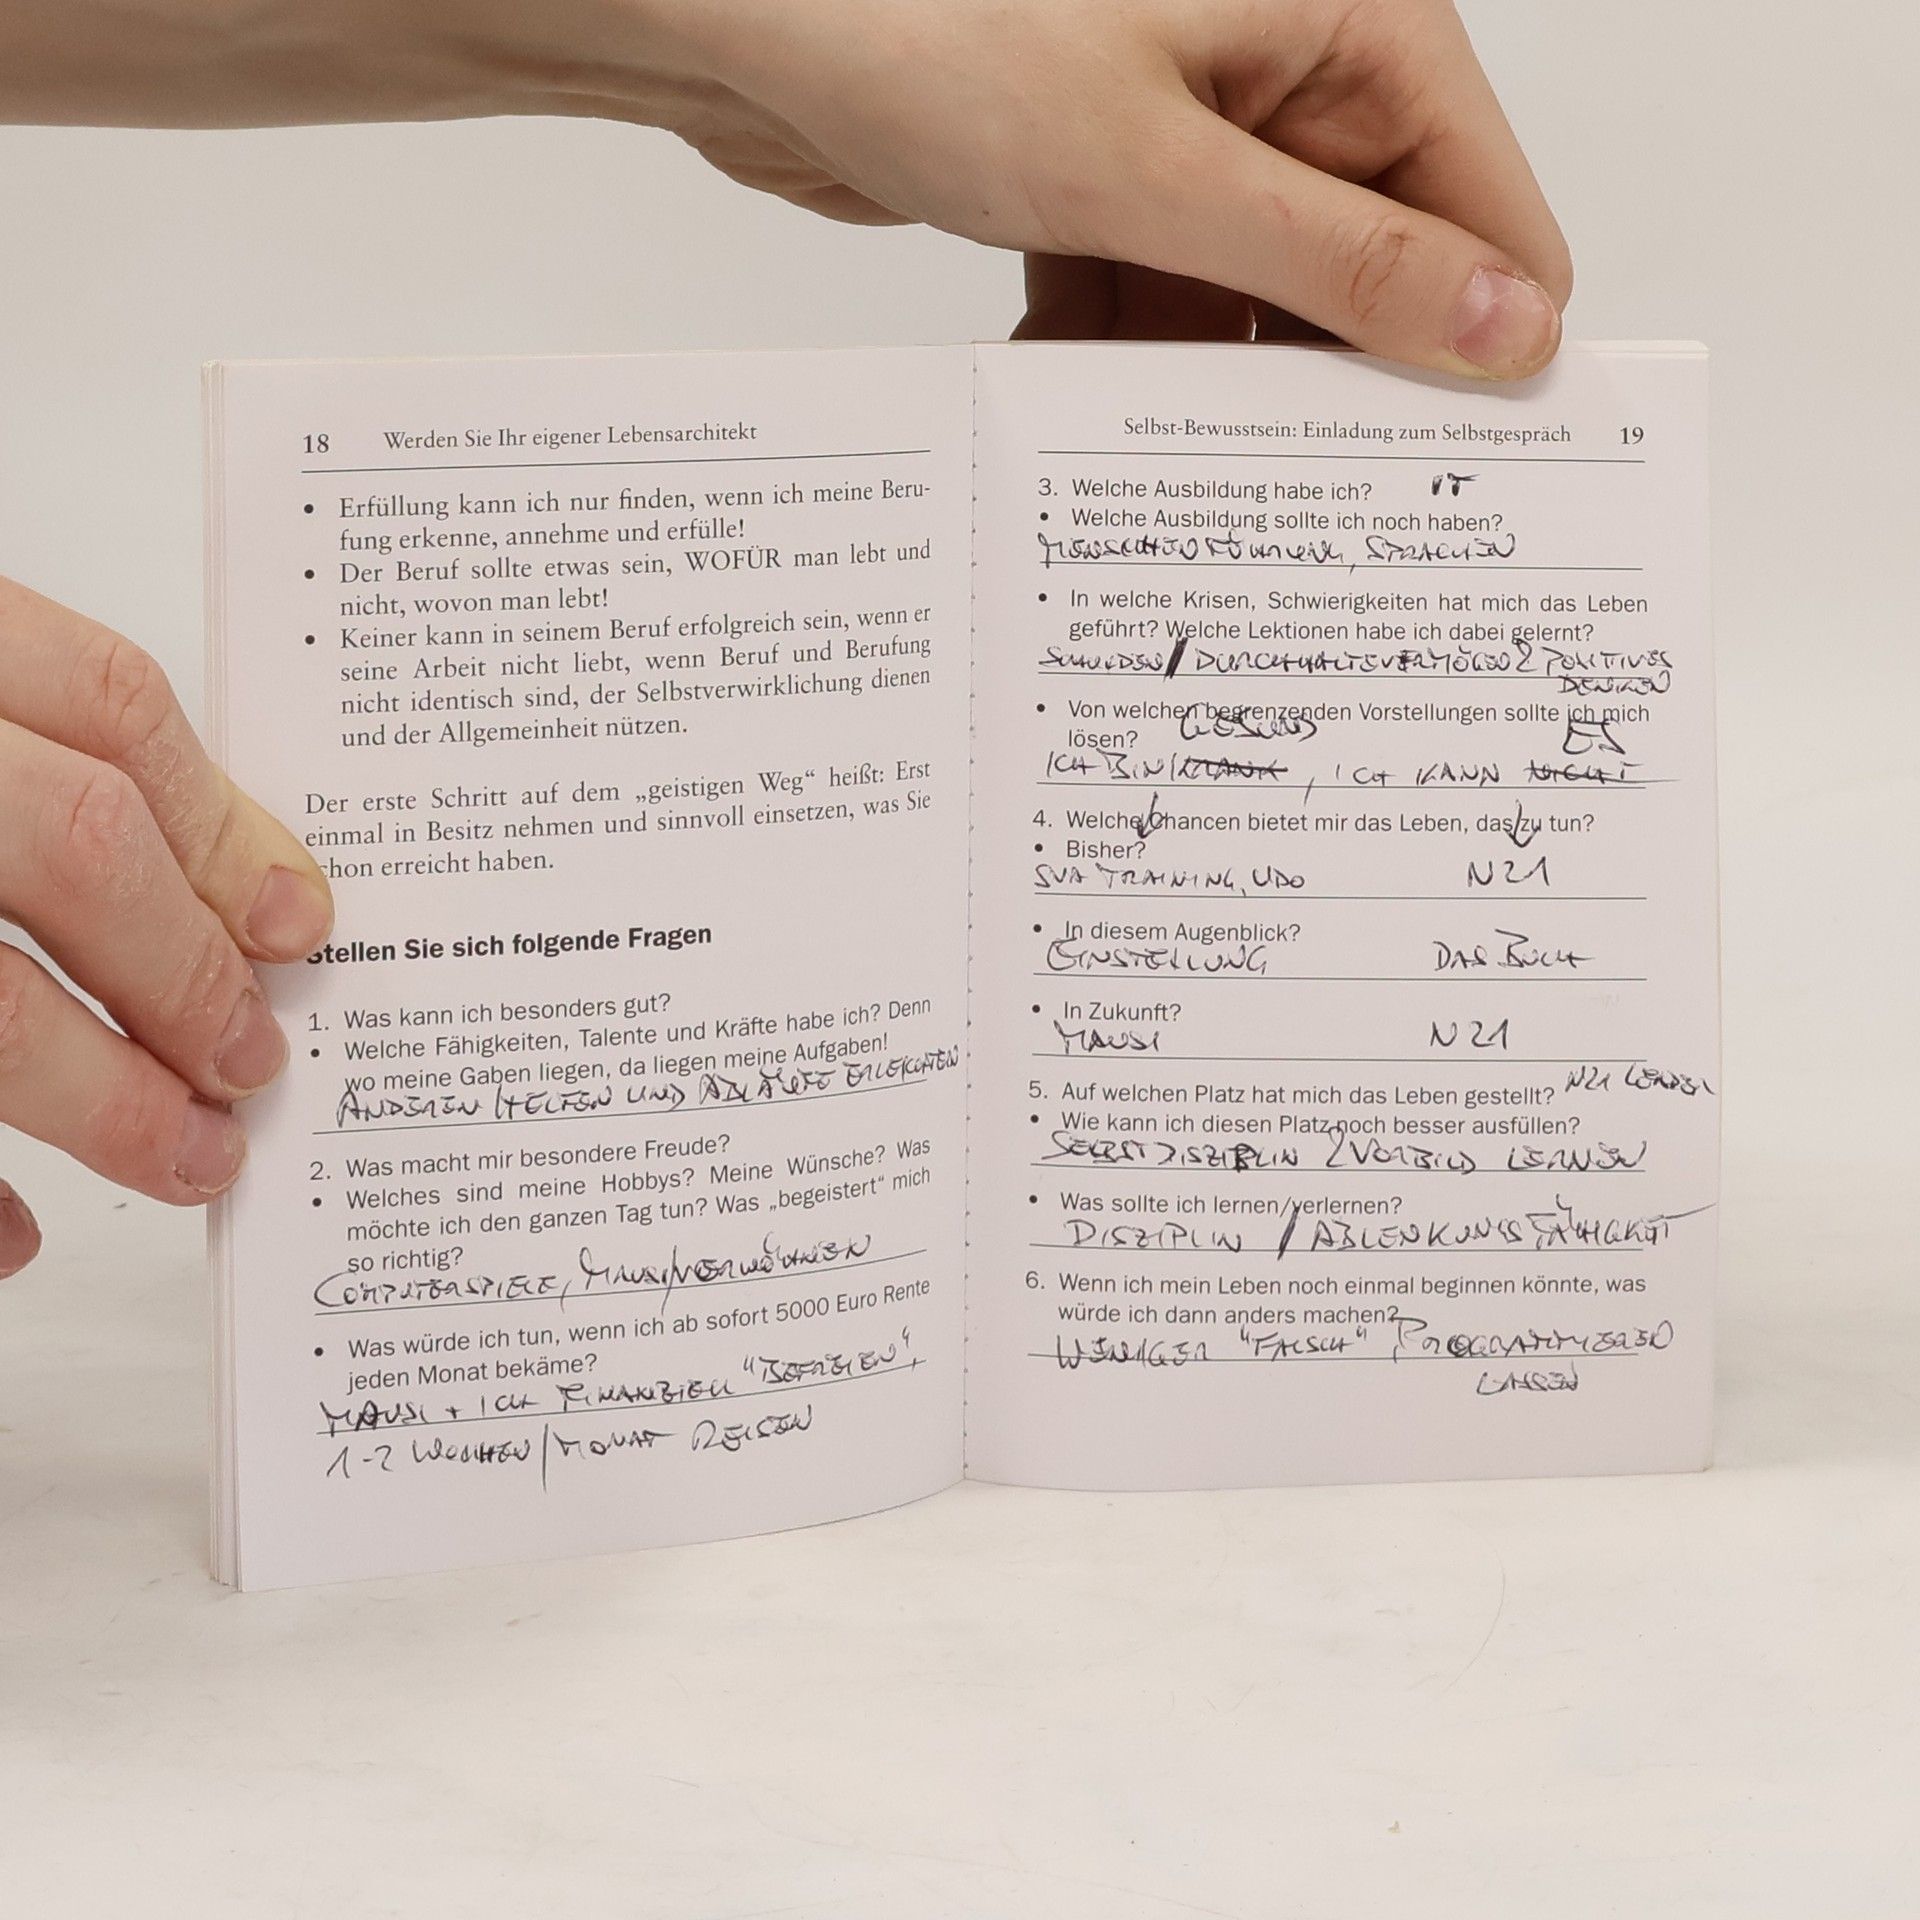 18 Werden Sie Ihr eigener Lebensarchitekt
• Erfüllung kann ich nur finden, wenn ich meine Beru-
fung erkenne, annehme und erfülle!
• Der Beruf sollte etwas sein, WOFÜR man lebt und
nicht, wovon man lebt!
• Keiner kann in seinem Beruf erfolgreich sein, wenn er
seine Arbeit nicht liebt, wenn Beruf und Berufung
nicht identisch sind, der Selbstverwirklichung dienen
und der Allgemeinheit nützen.
Der erste Schritt auf dem „geistigen Weg“ heißt: Erst
einmal in Besitz nehmen und sinnvoll einsetzen, was Sie
schon erreicht haben.
Stellen Sie sich folgende Fragen
1. Was kann ich besonders gut?
• Welche Fähigkeiten, Talente und Kräfte habe ich? Denn
wo meine Gaben liegen, da liegen meine Aufgaben!
ANDEREN HELFEN UND ABLÄUFE
2. Was macht mir besondere Freude?
• Welches sind meine Hobbys? Meine Wünsche? Was
möchte ich den ganzen Tag tun? Was „begeistert“ mich
so richtig?
COMPUTERSPIELE, MAUSI VERWÖHNEN
• Was würde ich tun, wenn ich ab sofort 5000 Euro Rente
jeden Monat bekäme?
MAUSI + ICH FINANZIELL "BEFREIEN",
1-2 WOCHEN/MONAT REISEN
Selbst-Bewusstsein: Einladung zum Selbstgespräch 19
3. Welche Ausbildung habe ich? IT
• Welche Ausbildung sollte ich noch haben?
MENSCHENFÜHRUNG, SPRACHEN
• In welche Krisen, Schwierigkeiten hat mich das Leben
geführt? Welche Lektionen habe ich dabei gelernt?
SCHULDEN / DURCHHALTEVERMÖGEN & POSITIVES
DENKEN
• Von welchen begrenzenden Vorstellungen sollte ich mich
lösen? GESUND ES
ICH BIN KRANK, ICH KANN NICHT
4. Welche Chancen bietet mir das Leben, das zu tun?
• Bisher?
SVA TRAINING, UDO N21
• In diesem Augenblick?
EINSTELLUNG DAS BUCH
• In Zukunft?
MAUSI N21
5. Auf welchen Platz hat mich das Leben gestellt? N21
• Wie kann ich diesen Platz noch besser ausfüllen?
SELBSTDISZIPLIN & VORBILD LERNEN
• Was sollte ich lernen/verlernen?
DISZIPLIN / ABLENKUNGSFÄHIGKEIT
6. Wenn ich mein Leben noch einmal beginnen könnte, was
würde ich dann anders machen?
WENIGER "FALSCH" PROGRAMMIEREN
LASSEN